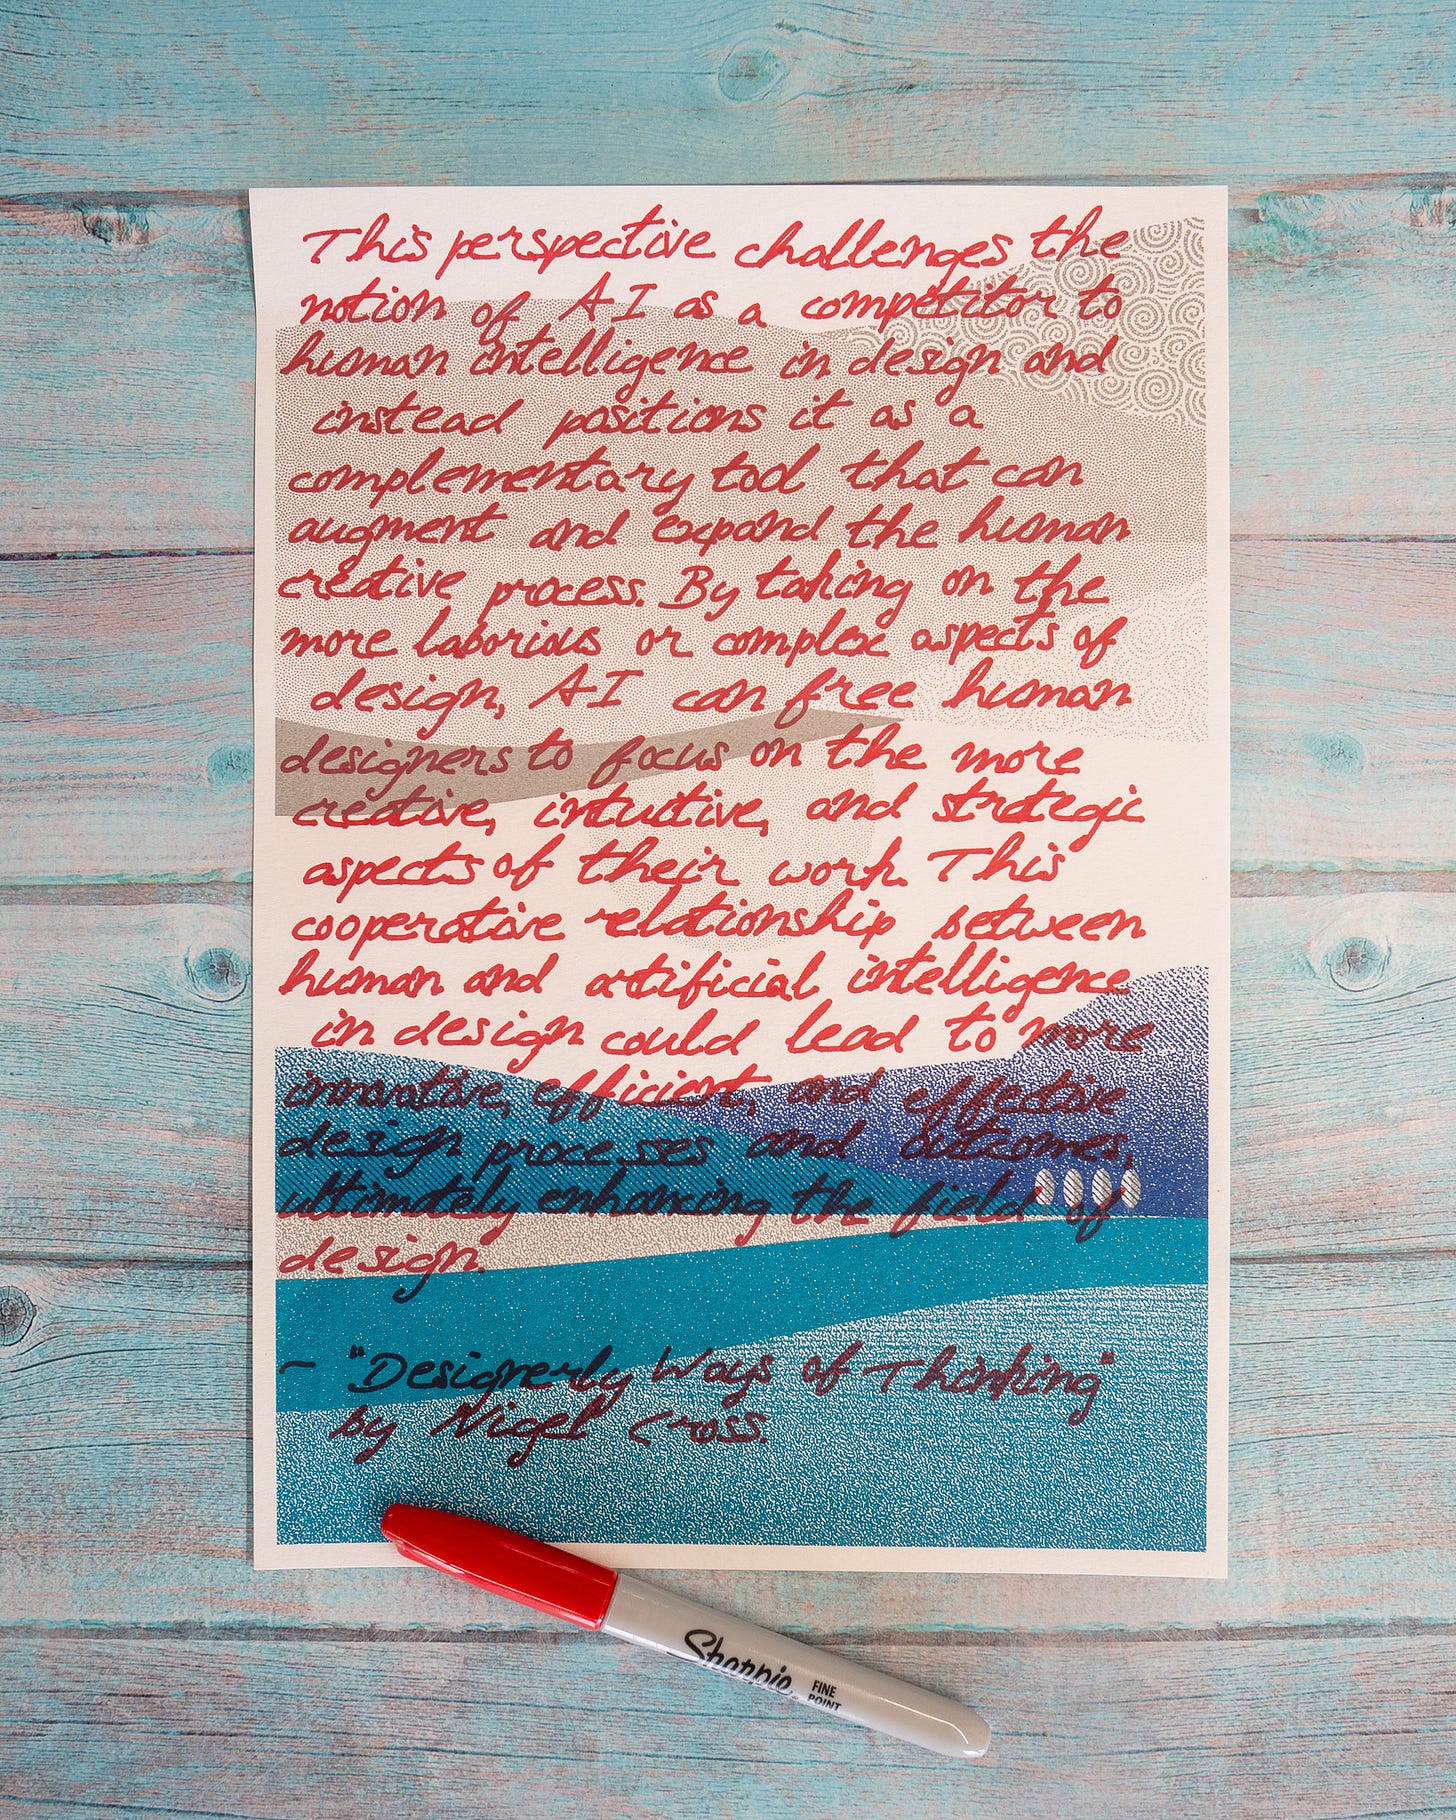 This perspective challenges the
notion of AI as a competitor to
human intelligence in design and
instead positions it as a
complementary tool that can
augment and expand the human
creative process. By taking on the
more laborious or complex aspects of
design, AI can free human
designers to focus on the more
creative, intuitive, and strategic
aspects of their work. This
cooperative relationship between
human and artificial intelligence
in design could lead to more
innovative, efficient, and effective
design processes and outcomes,
ultimately enhancing the field of
design.
~ "Designerly Ways of Thinking"
by Nigel Cross.
Sharpie
FINE
POINT